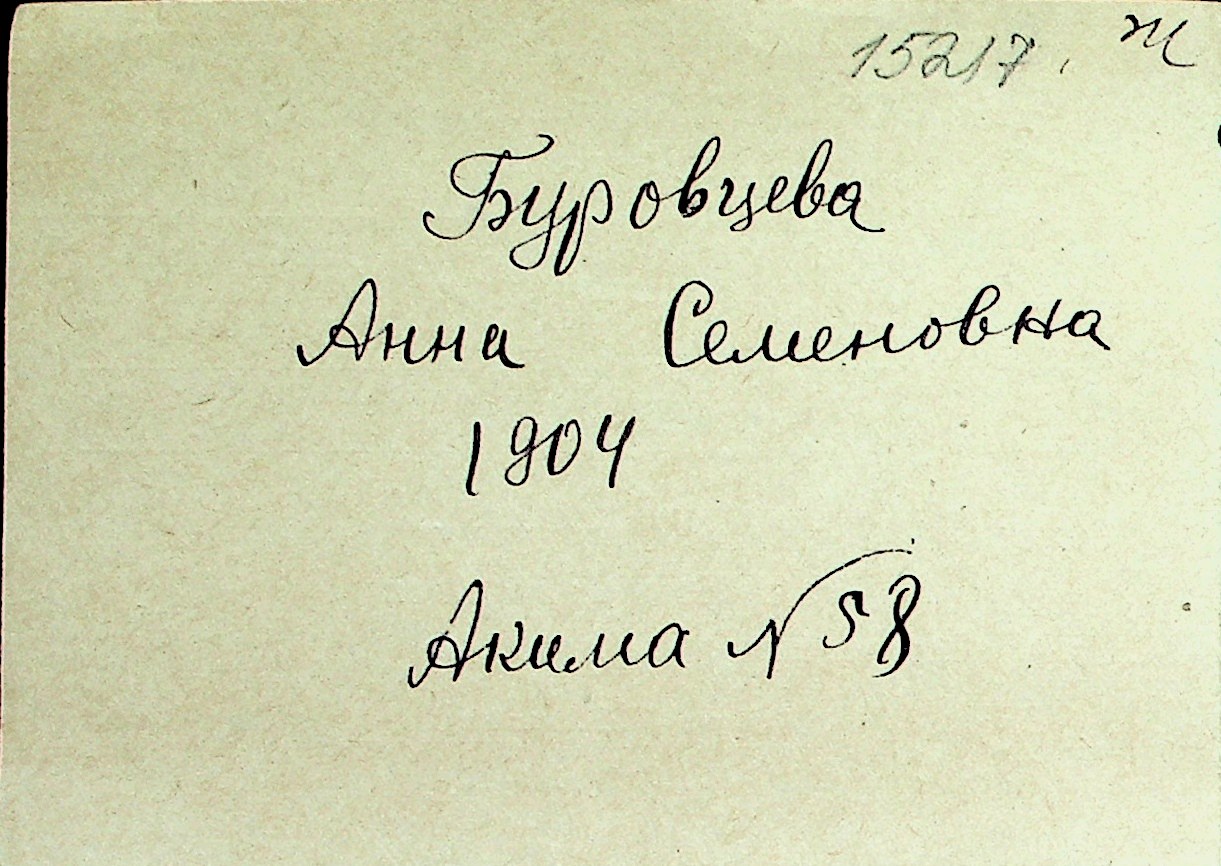 15217. Ж
Буровцева
Анна Семеновна
1904
Акима №58